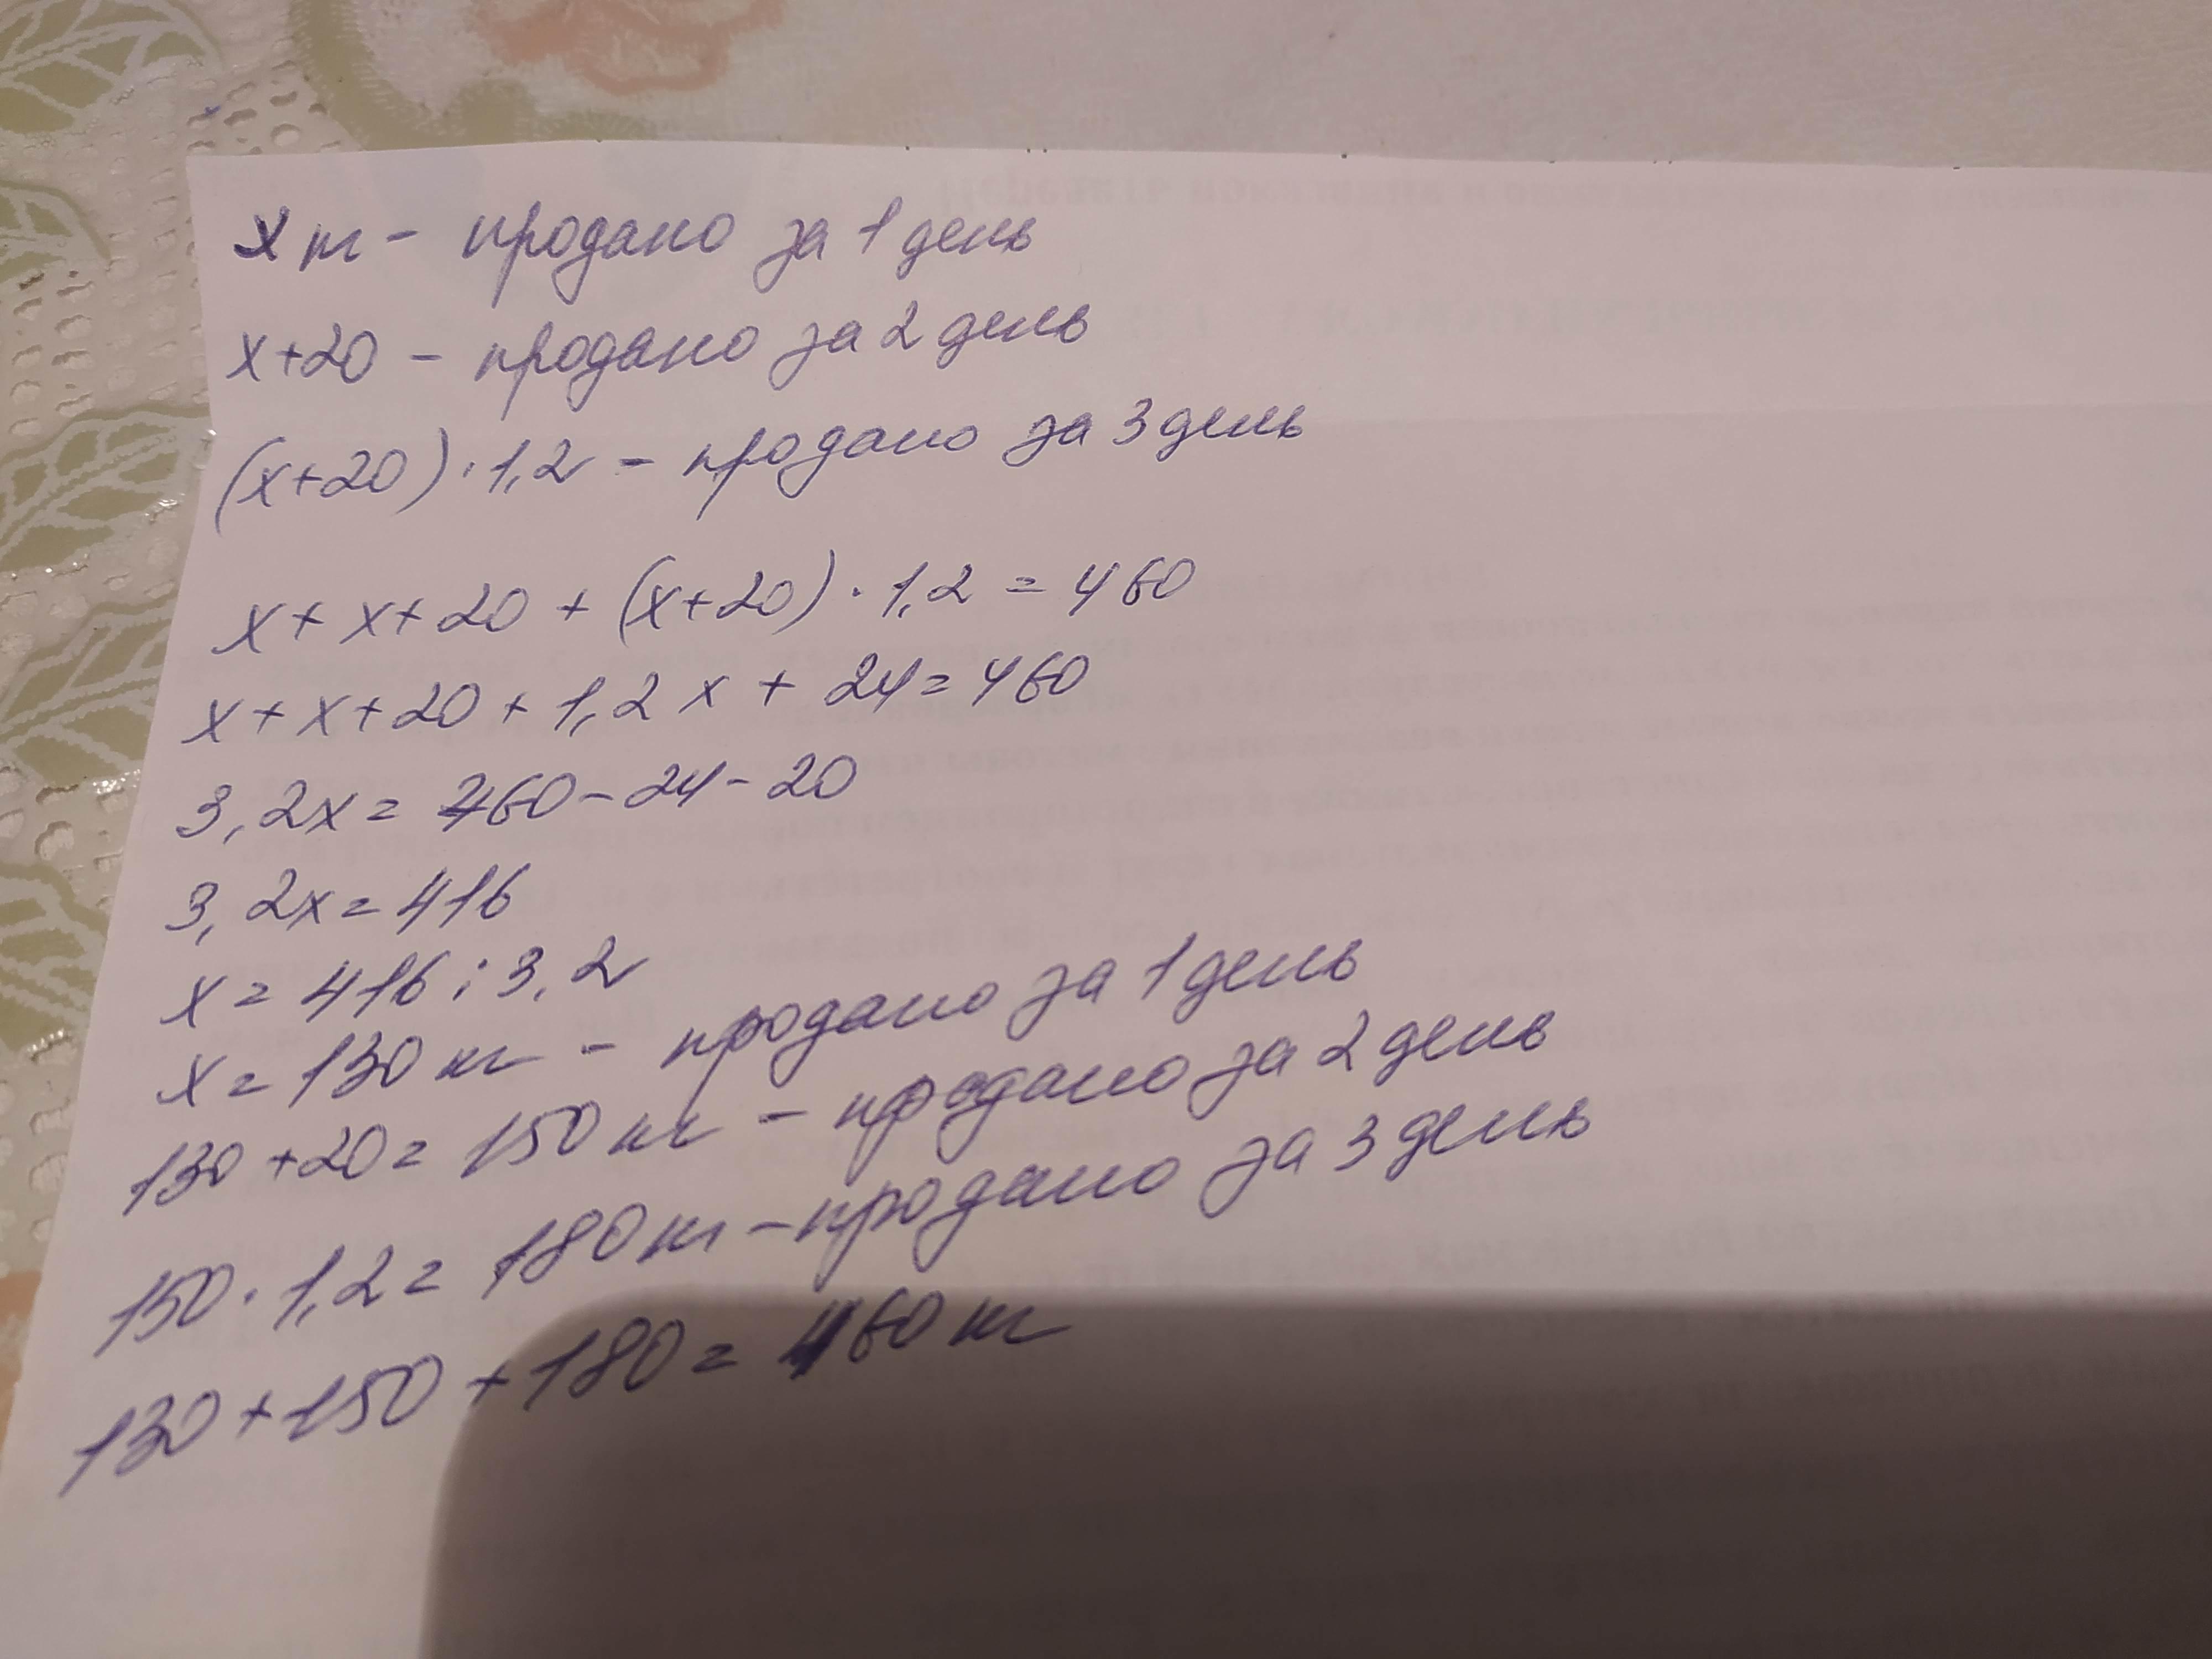 x кг - продано за 1 день
x+20 - продано за 2 день
(x+20)·1,2 - продано за 3 день
x+x+20+(x+20)·1,2=460
x+x+20+1,2x+24=460
3,2x=460-24-20
3,2x=416
x=416:3,2
x=130 кг - продано за 1 день
130+20=150 кг - продано за 2 день
150·1,2=180 кг - продано за 3 день
130+150+180=460 кг